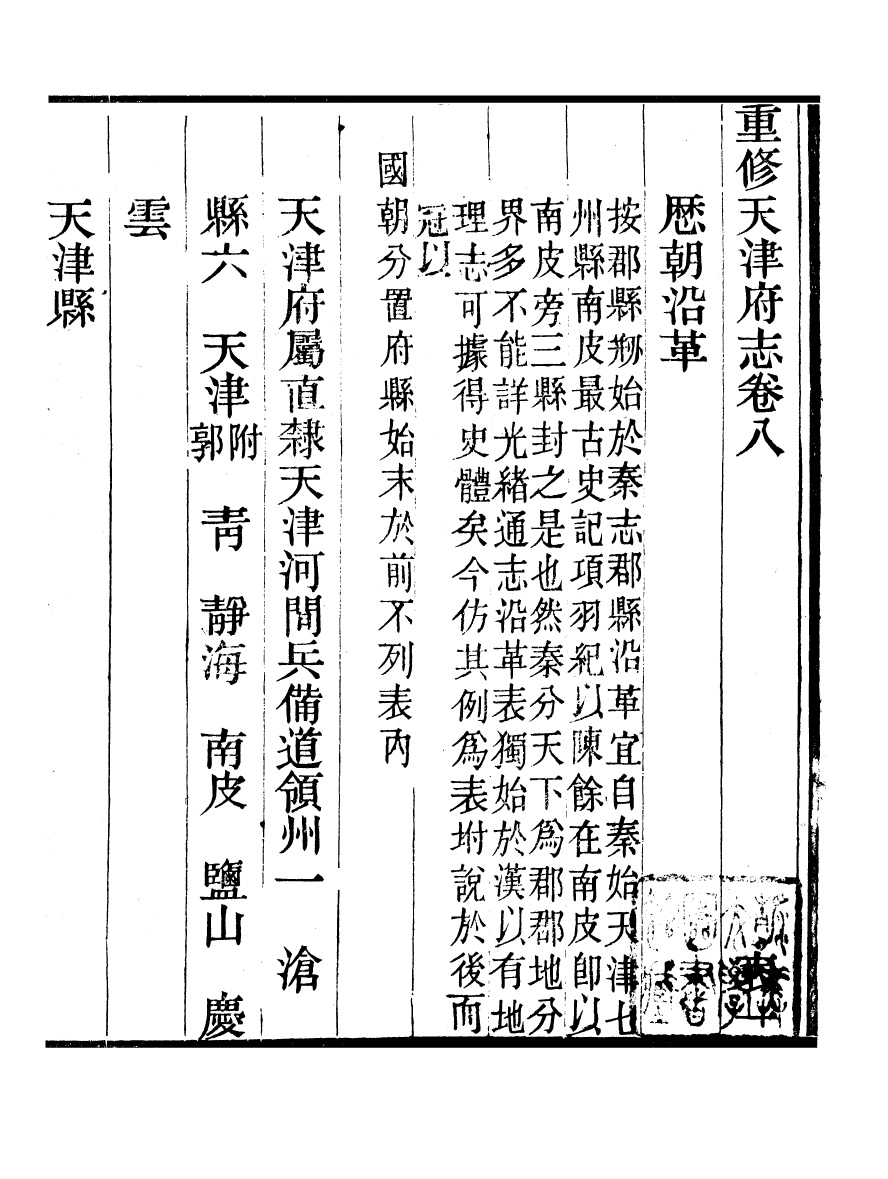 重修天津府志卷八
歷朝沿革
按郡縣剏始於秦志郡縣沿革宜自秦始天津七
州縣南皮最古史記項羽紀以陳餘在南皮卽以
南皮旁三縣封之是也然秦分天下爲郡郡地分
界多不能詳光緒通志沿革表獨始於漢以有地
理志可據得史體矣今仿其例爲表坿說於後而
冠以
國朝分置府縣始末於前不列表內
天津府屬直隸天津河間兵備道領州一 滄
縣六 天津附郭 靑 靜海 南皮 鹽山 慶
雲
天津縣